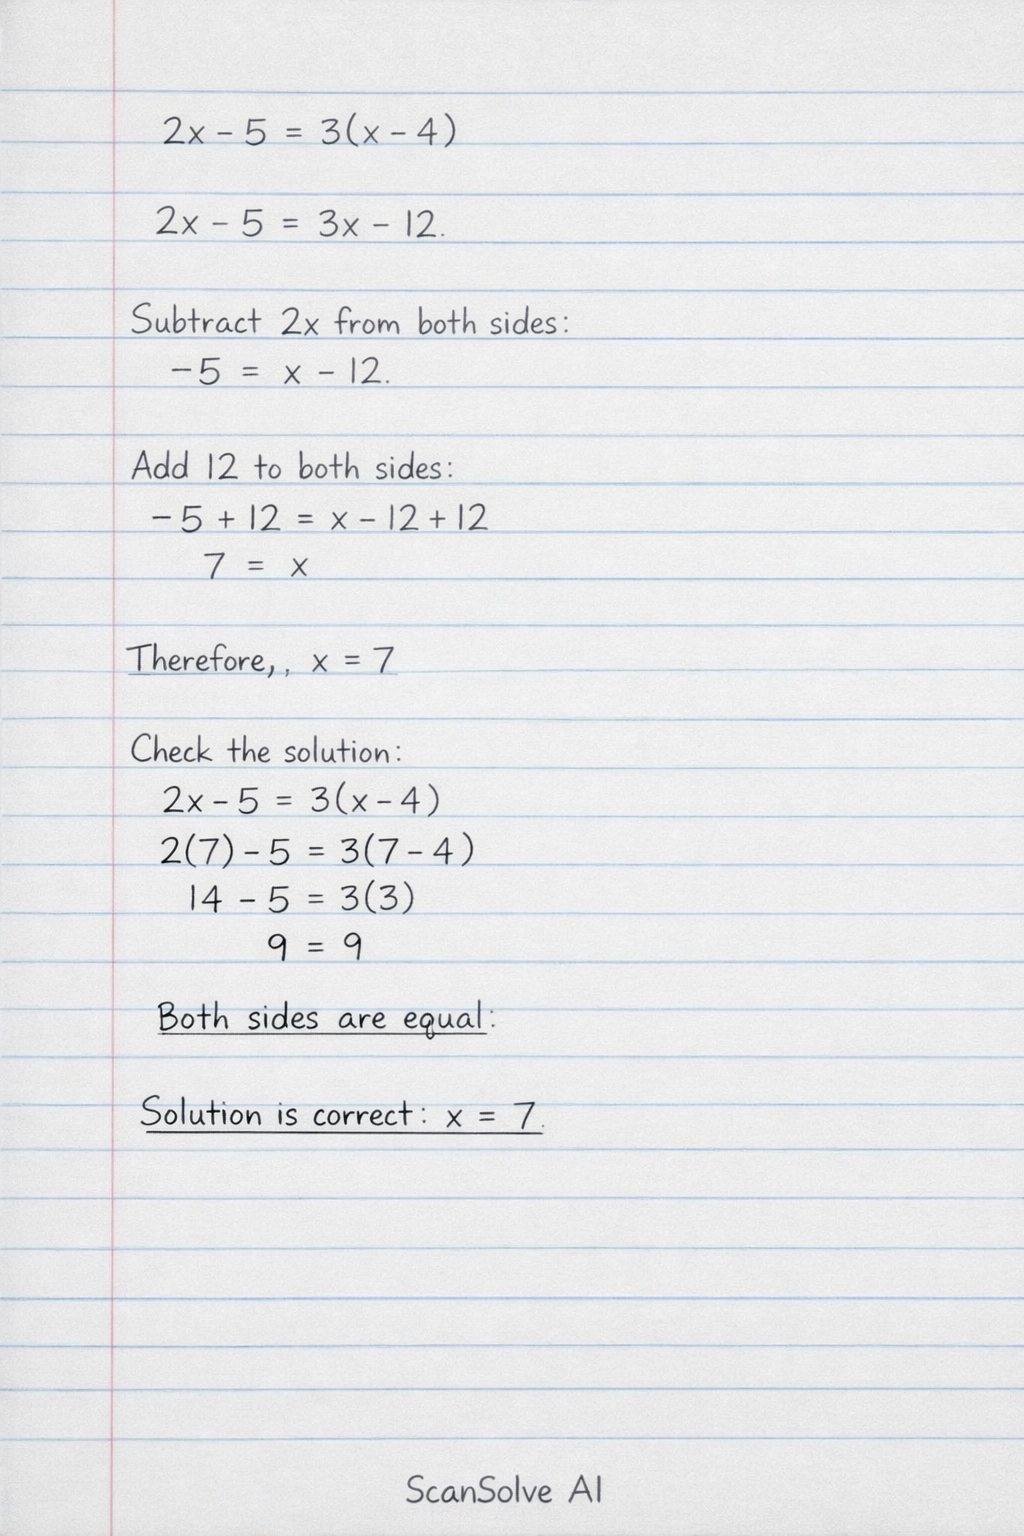 2x - 5 = 3(x - 4)
2x - 5 = 3x - 12.
Subtract 2x from both sides:
-5 = x - 12.
Add 12 to both sides:
-5 + 12 = x - 12 + 12
7 = x
Therefore,, x = 7
Check the solution:
2x - 5 = 3(x - 4)
2(7) - 5 = 3(7 - 4)
14 - 5 = 3(3)
9 = 9
Both sides are equal:
Solution is correct: x = 7.
ScanSolve AI